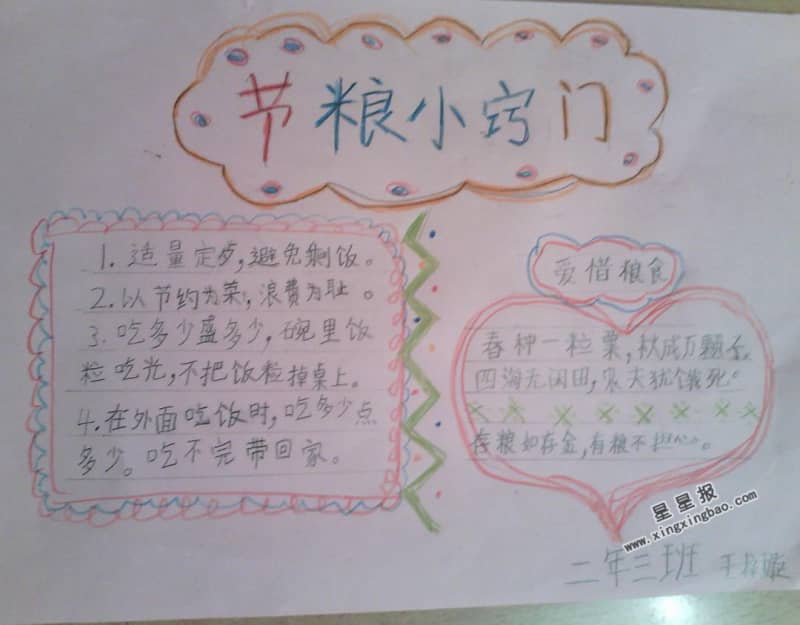 节粮小窍门
1. 适量定步,避免剩饭。
2. 以节约为荣,浪费为耻。
3. 吃多少盛多少,碗里饭
粒吃光,不把饭粒掉桌上。
4. 在外面吃饭时,吃多少点
多少。吃不完带回家。
爱惜粮食
春种一粒粟,秋成万颗子
四海无闲田,农夫犹饿死。
存粮如存金,有粮不担心。
星星报
www.xingxingbao.com
二年三班 王